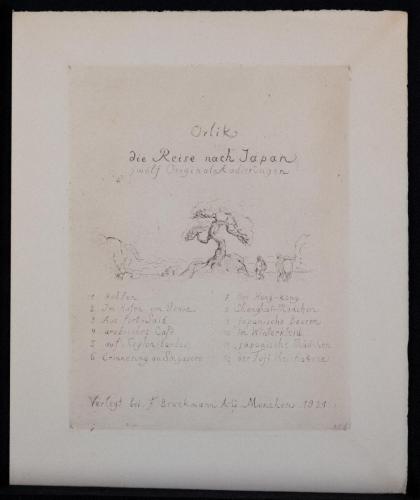 Orlik
die Reise nach Japan
zwölf Original-Radierungen
1
2 Im Hafen von Genua
3 Aus Port-Said
4 arabisches Café
5 auf
6 Erinnerung an Singapore
7 Bei Hong-Kong
8 Shanghai-Mädchen
9 japanische Bauern
10 Im Winterkleid
11 japanische Mädchen
12 der Fuji
Verlegt bei F. Bruckmann A.G. München 1921